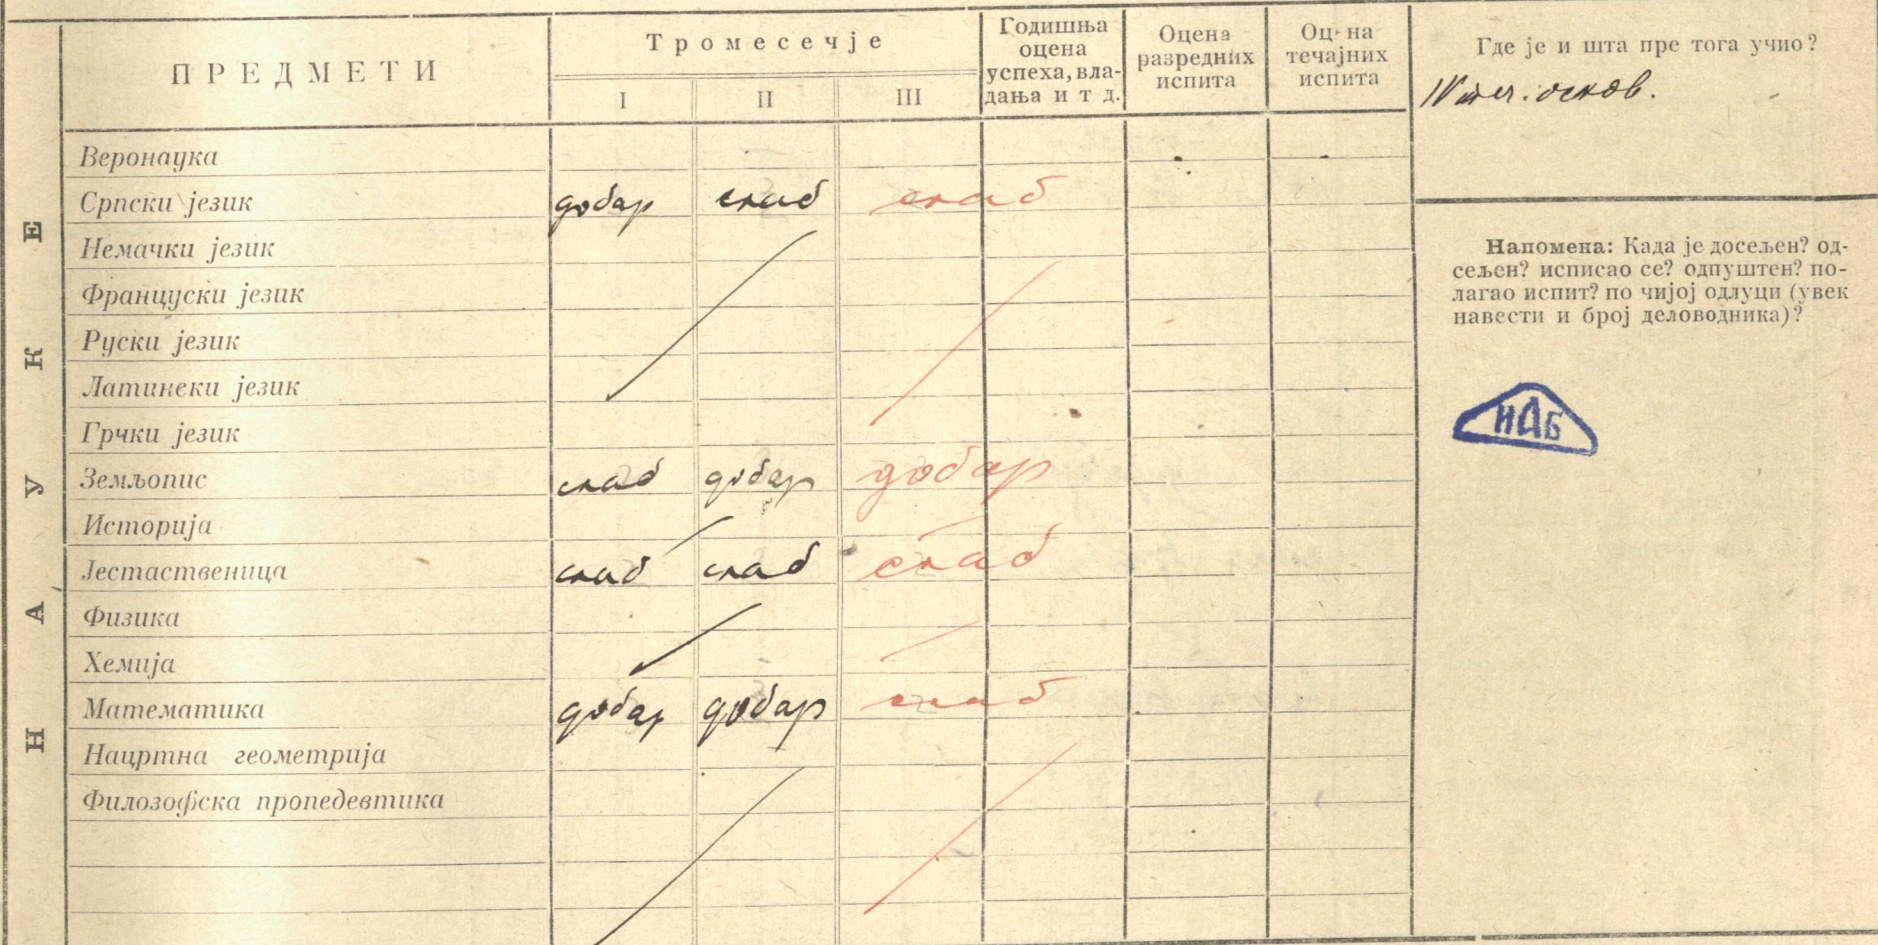 НАУКЕ
ПРЕДМЕТИ
Тромесечје
I II III
Годишња
оцена
успеха, вла-
дања и т д.
Оцена
разредних
испита
Оц на
течајних
испита
Где је и шта пре тога учио?
IV осн​ов.
Веронаука
Српски језик добар слаб слаб
Немачки језик
Француски језик
Руски језик
Латинеки језик
Грчки језик
Земљопис слаб добар добар
Историја
Јестаственица слаб слаб слаб
Физика
Хемија
Математика добар добар слаб
Нацртна геометрија
Филозофска пропедевтика
Напомена: Када је досељен? од-
сељен? исписао се? одпуштен? по-
лагао испит? по чијој одлуци (увек
навести и број деловодника)?
ИАБ